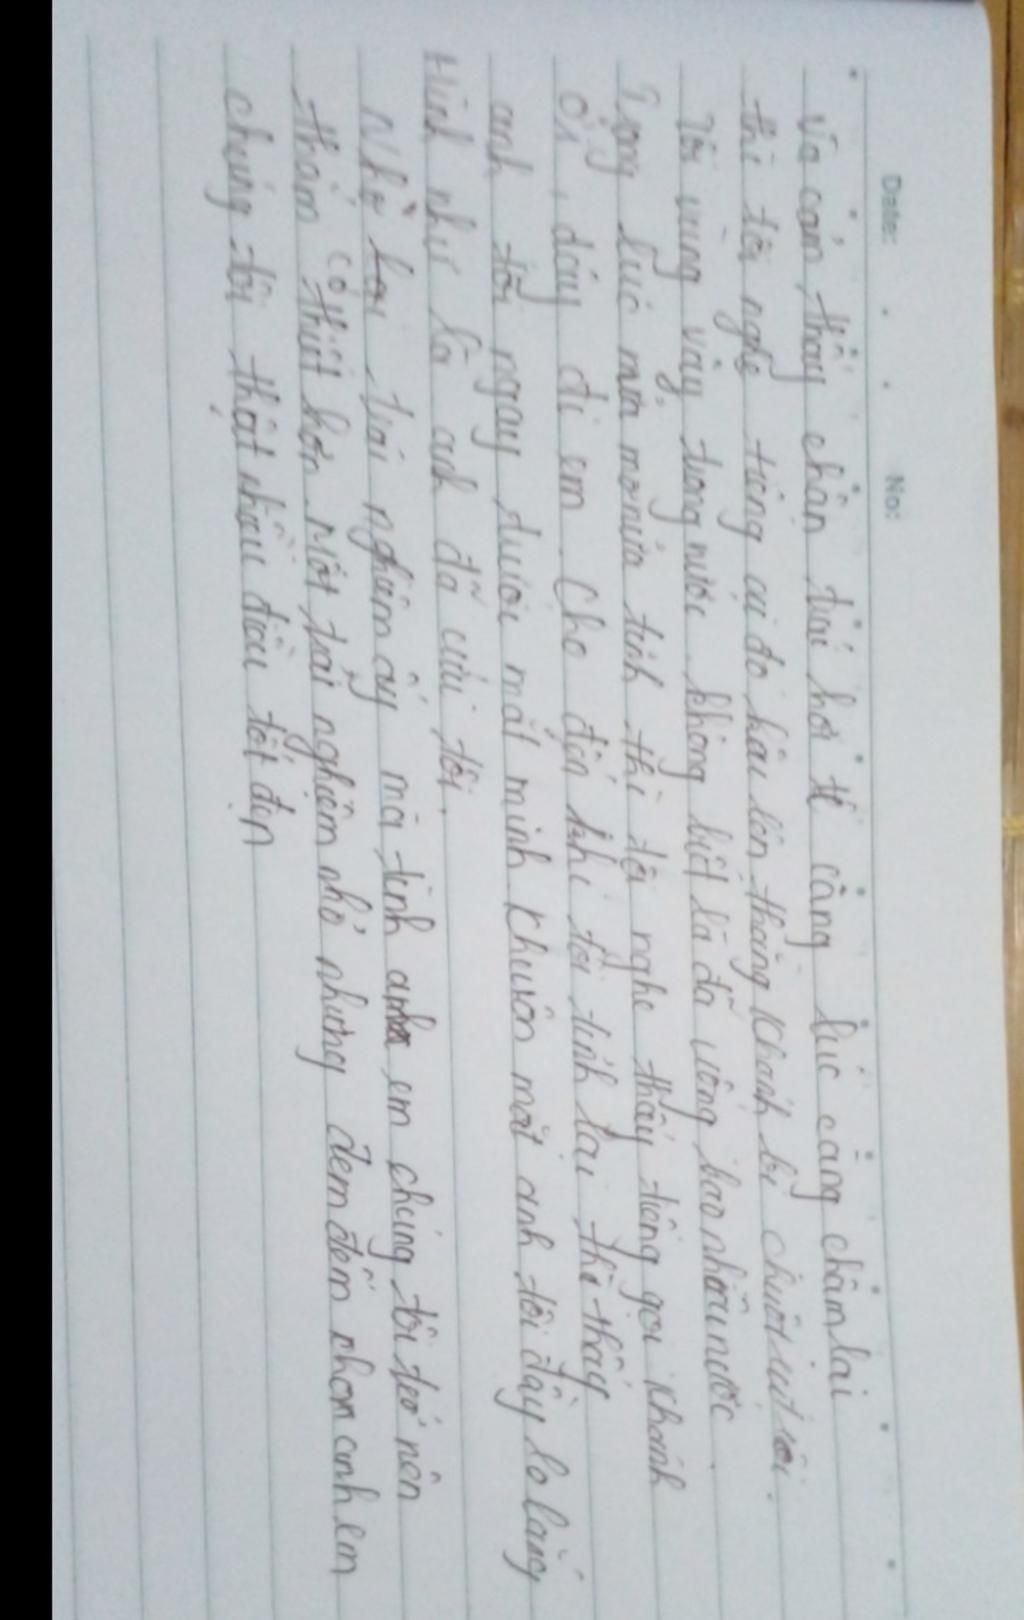 Date: No:
và cảm thấy chân tôi hơi tê càng lúc càng chậm lại
thì tôi nghe tiếng ai đó kêu lên thằng Khánh bị chuột rút rồi.
Tôi vùng vẫy trong nước không biết là đã uống bao nhiêu nước.
Trong lúc nửa mơ nửa tỉnh thì tôi nghe thấy tiếng gọi Khánh
ơi, dậy đi em. Cho đến khi tôi tỉnh lại thì thấy
anh tôi ngay trước mắt mình khuôn mặt anh tôi đầy lo lắng
Hình như là anh đã cứu tôi.
Nhờ trải nghiệm ấy mà tình anh em chúng tôi trở nên
thắm thiết hơn. Một trải nghiệm nhỏ nhưng đem đến cho anh em
chúng tôi thật nhiều điều tốt đẹp